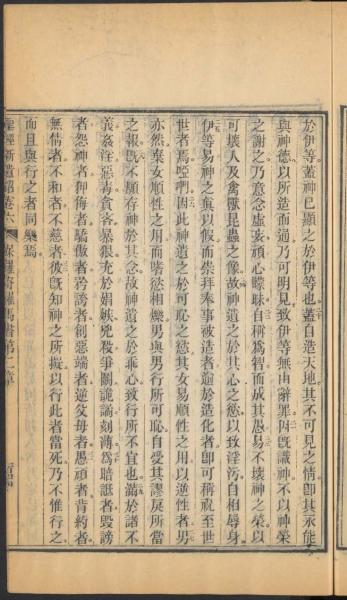 於伊等蓋神已顯之於伊等也蓋自造天地其不可見之情即其永能
與神德以所造而通乃可明見致伊等無由辭罪因既識神不以神榮
之謝之乃意念虛妄頑心曚昧自稱為智而成其愚易不壞神之榮以
可壞人及禽獸昆蟲之像故神遺之於其心之慾以致淫污自相辱身
伊等易神之真以假而崇拜奉事被造者逾於造化者即可稱祝至世
世者焉啞們因此神遺之於可恥之慾其女易順性之用以逆性者男
亦然棄女順性之用而嗜慾相爍男與男行所可恥自受其謬戾所當
之報既不願存神於其念故神遺之於乖心致行所不宜也滿於諸不
義姦淫惡毒貪吝暴狠充於娼嫉兇殺爭鬭詭譎刻薄為賠誹者毀謗
者怨神者狎侮者驕傲者矜誇者創惡端者逆父母者愚頑者背約者
無情者不和者不慈者彼既知神之所擬以行此者當死乃不惟行之
而且與行之者同樂焉
聖經新遺詔卷六 保羅寄羅馬書第一章